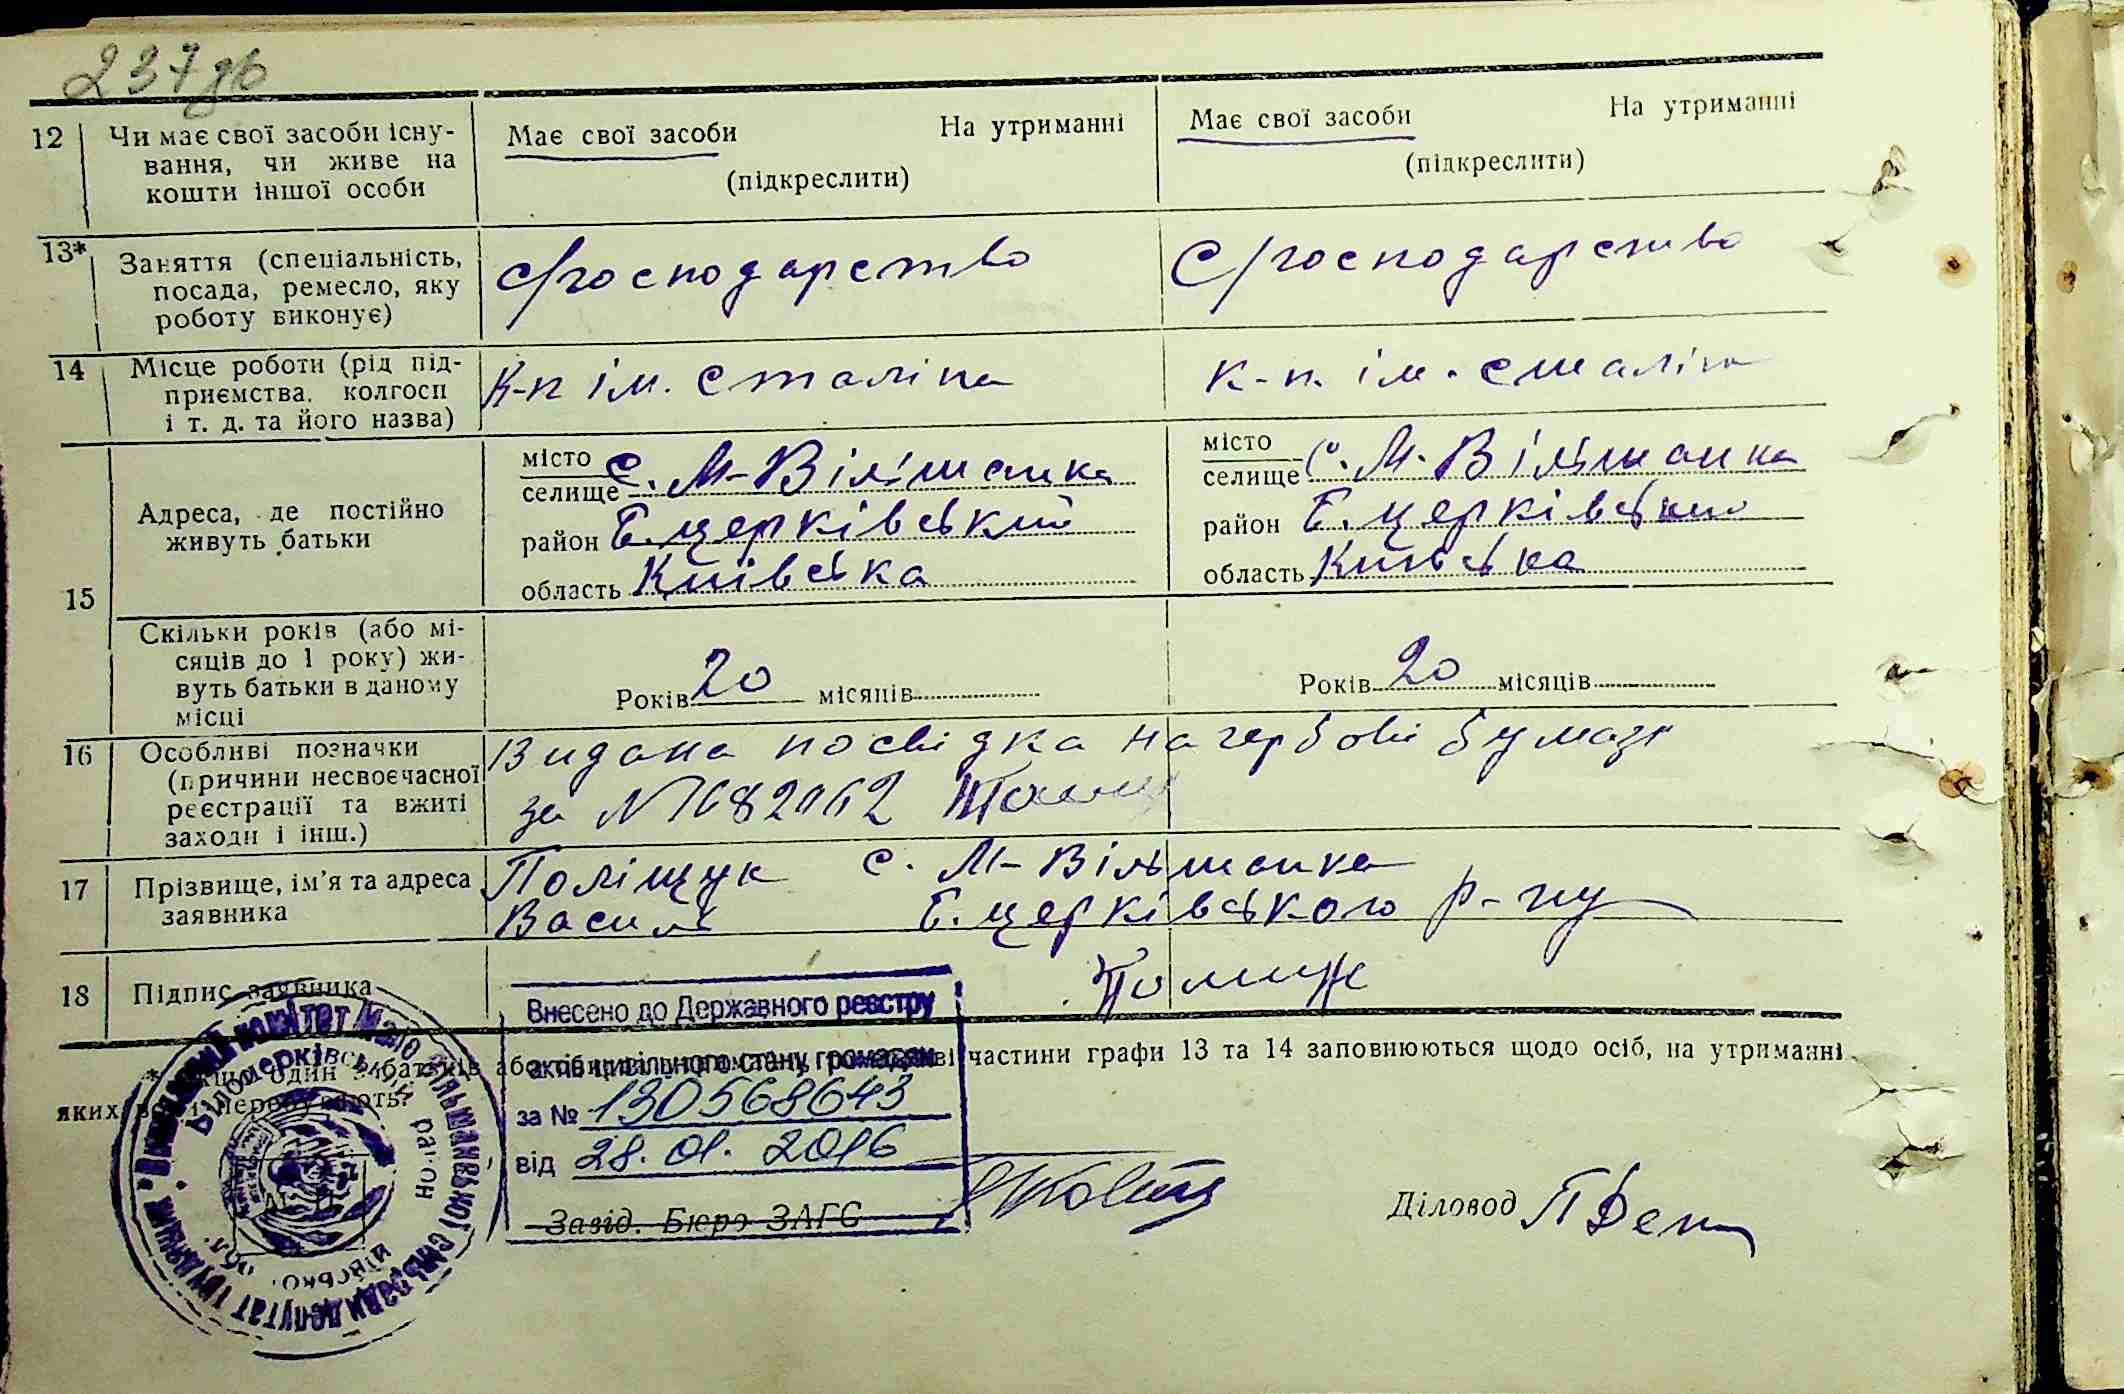 237зв
12 Чи має свої засоби існу-
вання, чи живе на
кошти іншої особи
Має свої засоби На утриманні
(підкреслити)
Має свої засоби На утриманні
(підкреслити)
13* Заняття (спеціальність,
посада, ремесло, яку
роботу виконує)
с/господарство
с/господарство
14 Місце роботи (рід під-
приємства, колгосп
і т. д. та його назва)
К-п ім. Сталіна
К-п. ім. Сталіна
15 Адреса, де постійно
живуть батьки
місто
селище с. М-Вільшанка
район Б.церківський
область Київська
місто
селище с. М-Вільшанка
район Б.церківський
область Київська
Скільки років (або мі-
сяців до 1 року) жи-
вуть батьки в даному
місці
Років 20 місяців
Років 20 місяців
16 Особливі позначки
(причини несвоєчасної
реєстрації та вжиті
заходи і інш.)
Видана посвідка на гербові бумазі
за №
17 Прізвище, ім'я та адреса
заявника
Поліщук с. М-Вільшанка
Василь Б.церківського р-ну
18 Підпис заявника
один з батьків або
частини графи 13 та 14 заповнюються щодо осіб, на утриманні
яких
Внесено до Державного реєстру
актів цивільного стану громадян
за № 130568643
від 28.01.2016
Завід. Бюро ЗАГС
Діловод
Виконавчий комітет Мало-Вільшанської сільради депутат. трудящих
Білоцерківський район
Київської обл.